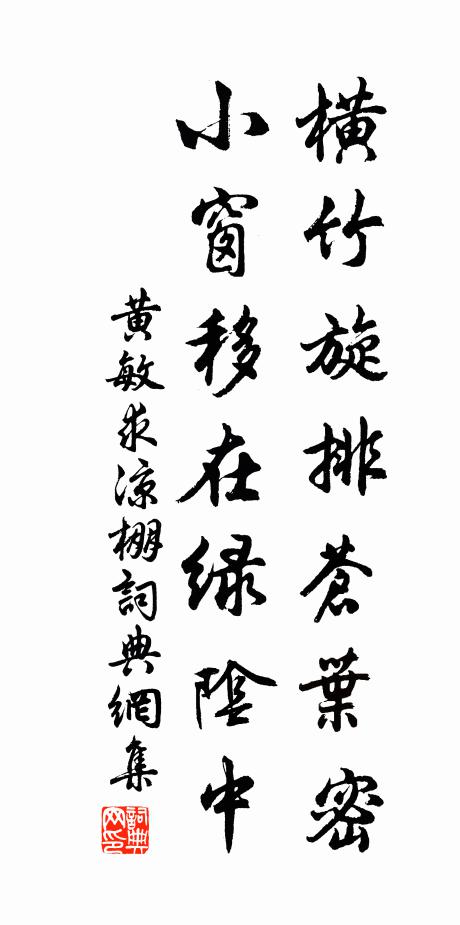 橫竹旋排蒼葉密
小窗移在綠陰中
黃敏求涼棚詞典網集
詞典
网印